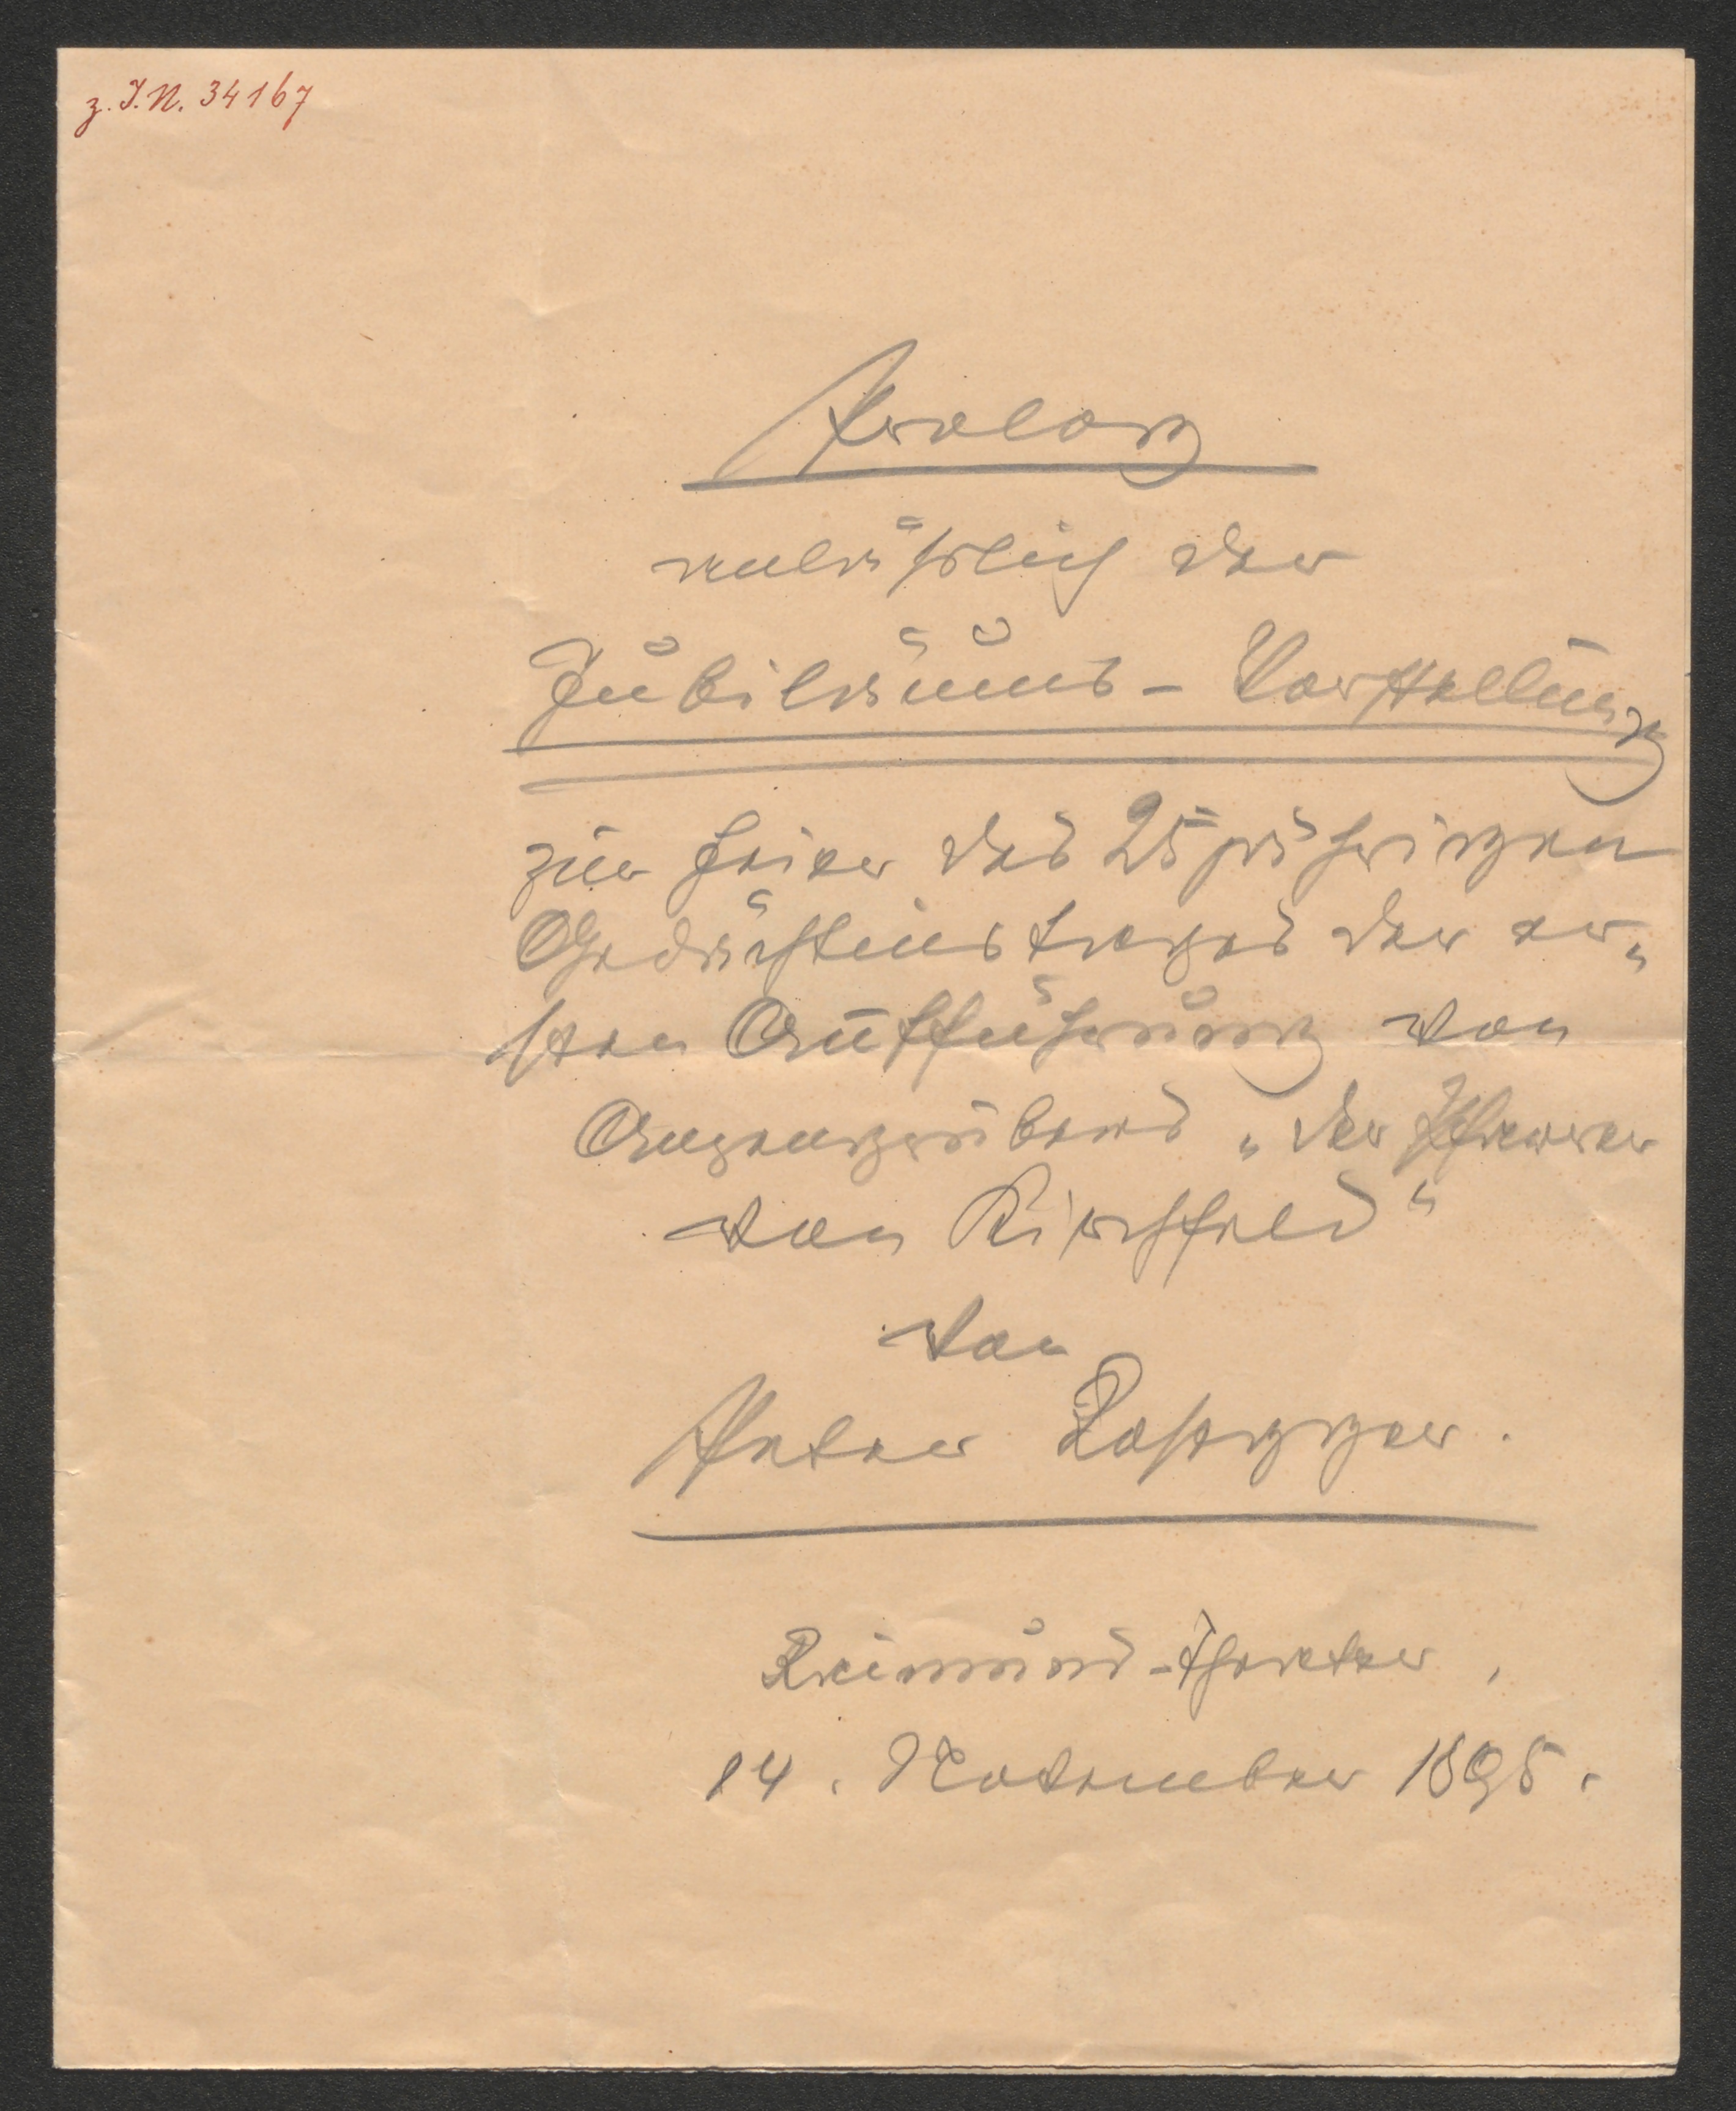 z. I. N. 34167
Prolog
anläßlich der
Jubiläums-Vorstellung
zur Feier des 25 jährigen
Gedächtnistages der er„
sten Aufführung von
Anzengrubers „Der Pfarrer
von Kirchfeld“
von
Peter Rosegger.
Raimund-Theater,
14. November 1895.